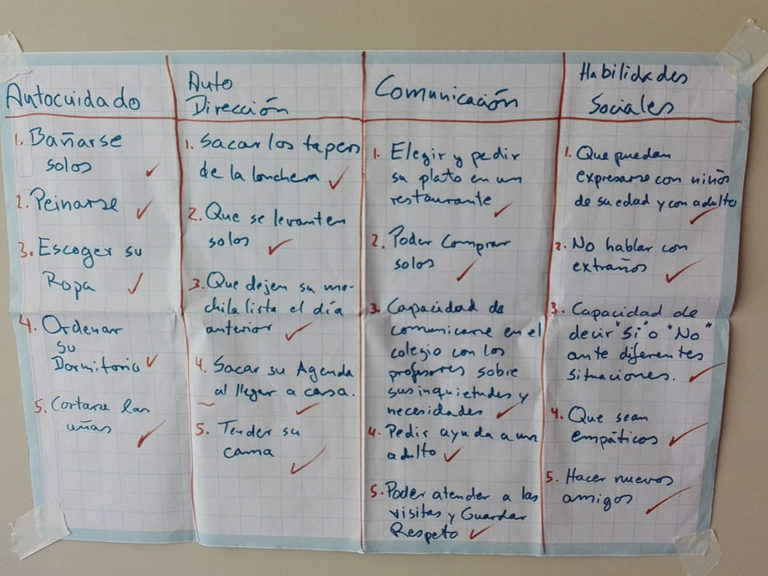 Autocuidado
1. Bañarse
solos
2. Peinarse
3. Escoger su
Ropa
4. Ordenar
su
Dormitorio
5. Cortarse las
uñas
Auto
Dirección
1. Sacar los tapers
de la lonchera
2. Que se levanten
solos
3. Que dejen su mo-
chila lista el día
anterior
4. Sacar su Agenda
al llegar a casa.
5. Tender su
cama
Comunicación
1. Elegir y pedir
su plato en un
restaurante
2. Poder Comprar
solos
3. Capacidad de
comunicarse en el
colegio con los
profesores sobre
sus inquietudes y
necesidades
4. Pedir ayuda a un
adulto
5. Poder atender a las
visitas y Guardar
Respeto
Habilidades
Sociales
1. Que puedan
expresarse con niños
de su edad y con adulto
2. No hablar con
extraños
3. Capacidad de
decir "Si" o "No"
ante diferentes
situaciones.
4. Que sean
empáticos
5. Hacer nuevos
amigos